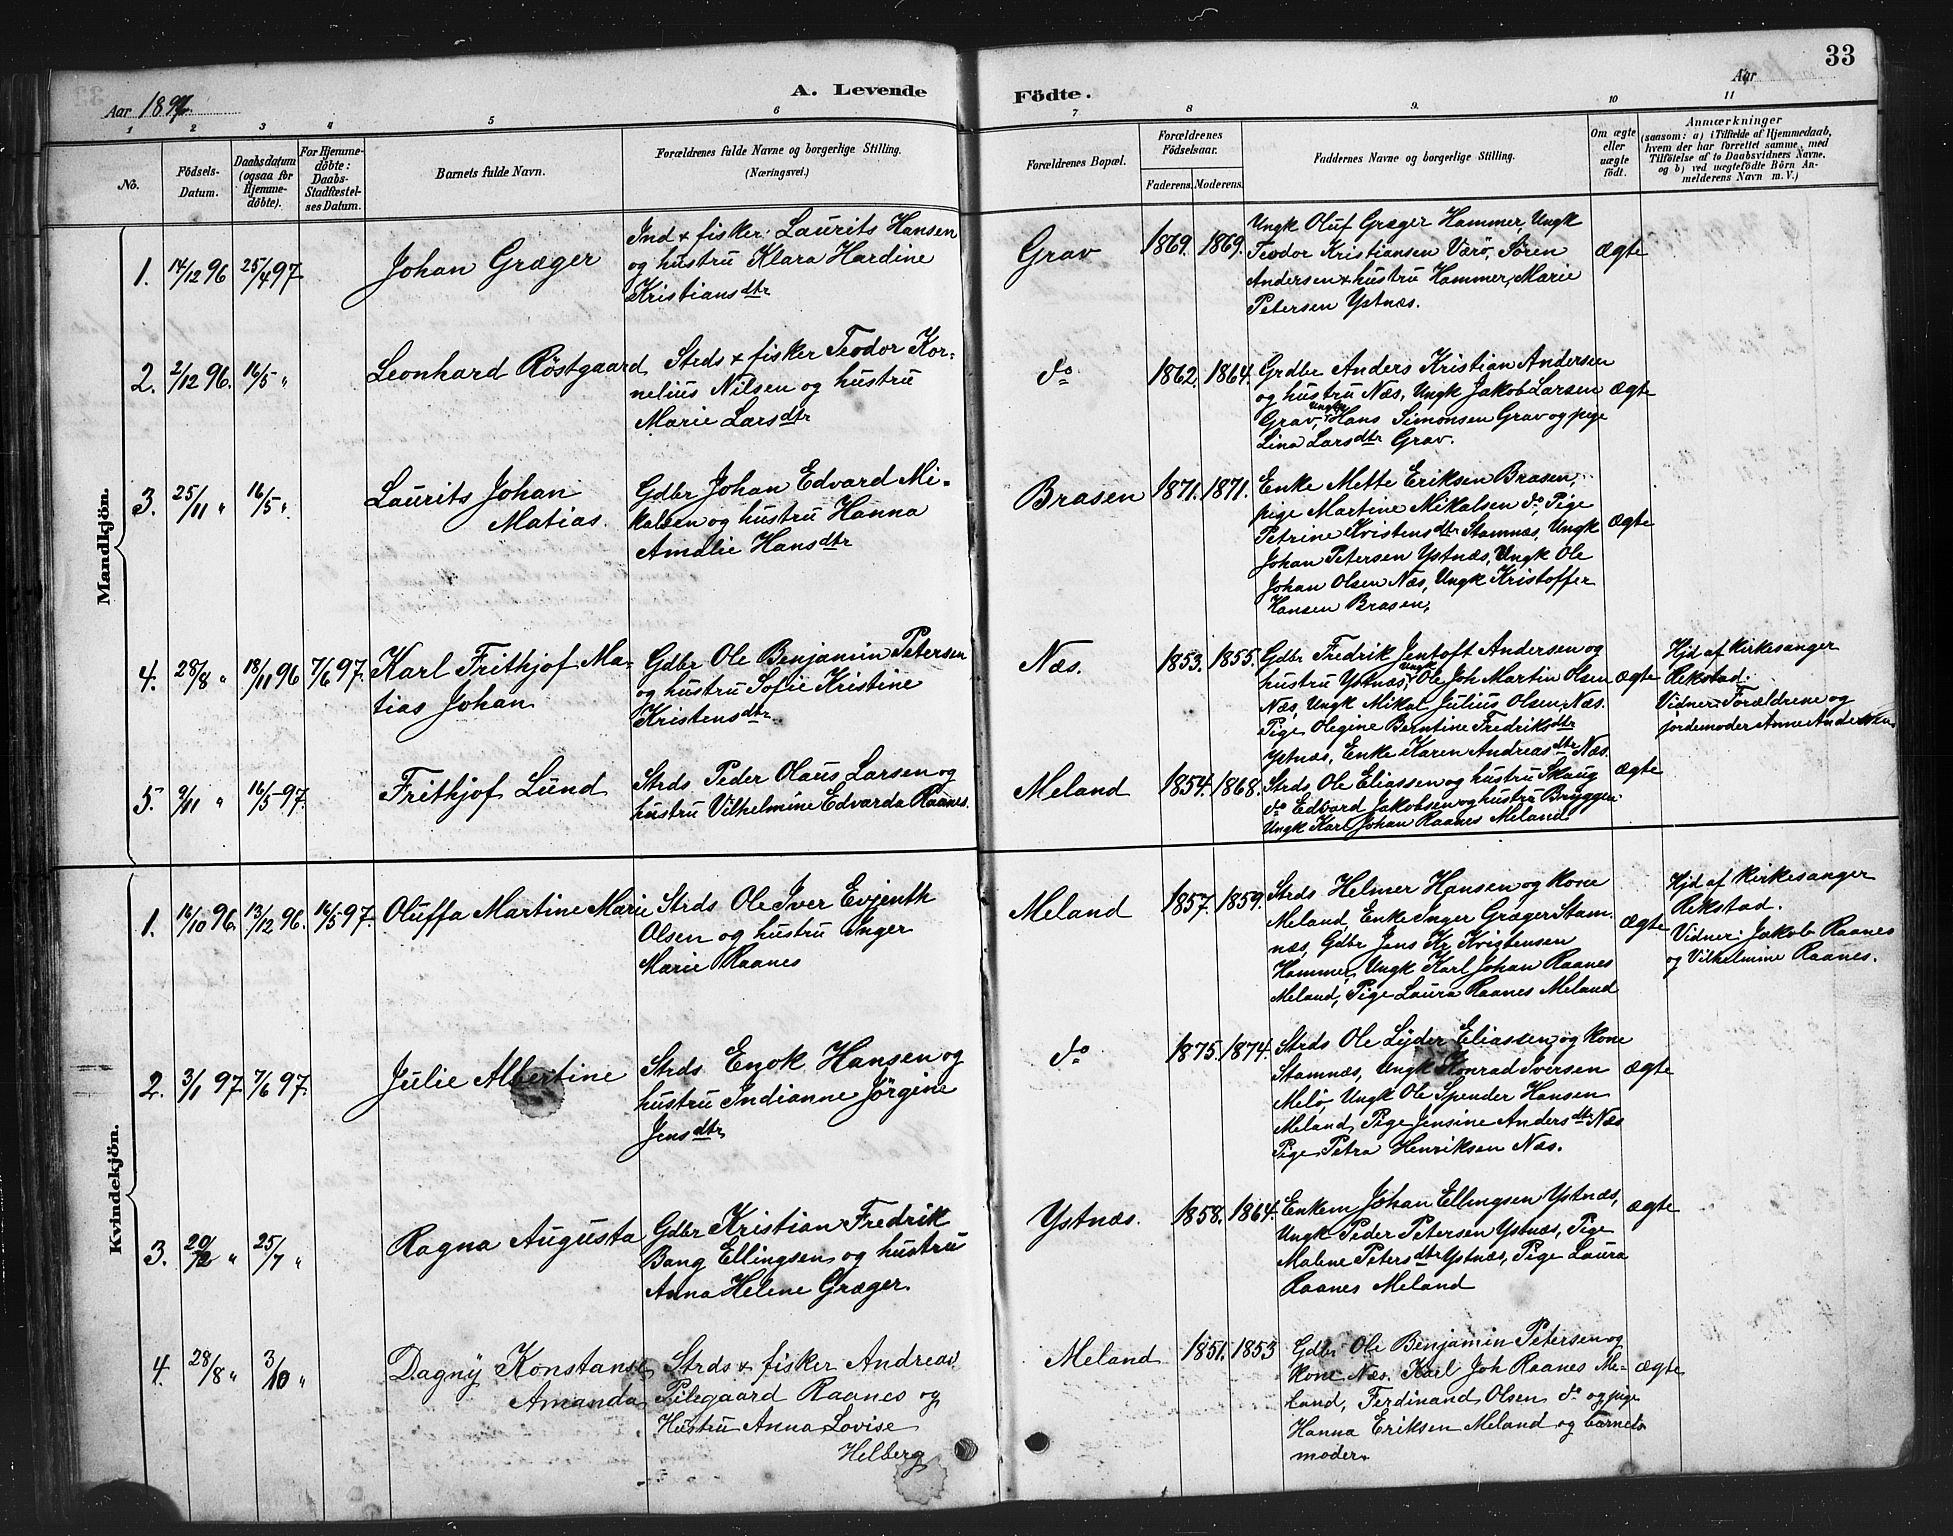 33
Aar 1897.
A. Levende
Födte.
Aar
1 2 3 4 5 6 7 8 9. 10 11
No.
Födsels-
Datum.
Daabsdatum
(ogsaa for
Hjemme-
döbte).
For Hjemme-
döbte:
Daabs-
Stadfæstel-
ses Datum.
Barnets fulde Navn.
Forældrenes fulde Navne og borgerlige Stilling.
(Næringsvei.)
Forældrenes Bopæl.
Forældrenes
Födselsaar.
Faderens. Moderens.
Faddernes Navne og borgerlige Stilling.
Om ægte
eller
uægte
födt.
Anmærkninger
(saasom: a) i Tilfælde af Hjemmedaab,
hvem der har forrettet samme, med
Tilföielse af to Daabsvidners Navne,
og b) ved uægtefödte Börn An-
melderens Navn m. V.)
Mandkjön.
1. 14/12 96 25/4 97
Johan Græger
Ind & fisker Laurits Hansen
og hustru Klara Hardine
Kristiansdtr
Grav
1869. 1869.
Ungk Oluf Græger Hammer, Ungk
Teodor Kristiansen Værö, Sören
Andersen & hustru Hammer, Marie
Petersen Ystnæs.
ægte
2. 2/12 96. 16/5 "
Leonhard Röstgaard
Strds & fisker Teodor Kor-
nelius Nilsen og hustru
Marie Larsdtr
do
1862. 1864.
Grdbr Anders Kristian Andersen
og hustru Næs, Ungk Jakob Larsen
Grav, Ungk Hans Simonsen Grav og pige
Lina Larsdtr Grav.
ægte
3. 25/11 " 16/5 "
Laurits Johan
Matias.
Gdbr Johan Edvard Mi-
kalsen og hustru Hanna
Amalie Hansdtr
Brasen
1871. 1871.
Enke Mette Eriksen Brasen,
pige Martine Mikalsen do, Pige
Petrine Kristensdtr Stamnæs, Ungk
Johan Petersen Ystnæs, Ungk Ole
Johan Olsen Næs, Ungk Kristoffer
Hansen Brasen,
ægte
4. 28/8 " 18/11 96 7/6 97.
Karl Frithjof Ma-
tias Johan
Gdbr Ole Benjamin Petersen
og hustru Sofie Kristine
Kristensdtr
Næs.
1853. 1855.
Gdbr Fredrik Jentoft Andersen og
hustru Ystnæs, Ungk Ole Joh Martin Olsen
Næs, Ungk Mikal Julius Olsen, Næs.
Pige Olegine Berntine Fredriksdtr
Ystnæs, Enke Karen Andreasdtr Næs.
ægte
Hjd af Kirkesanger
Rekstad.
Vidner: Forældrene og
jordemoder Anne Andersen
5. 9/11 " 16/5 97
Frithjof Lund
Strds Peder Olaus Larsen og
hustru Vilhelmine Edvarda Raanes.
Meland
1854. 1868.
Strds Ole Eliassen og hustru Skaug
do Edvard Jakobsen og hustru Bryggen
Ungk Karl Johan Raanes Meland
ægte
Kvindekjön.
1. 16/10 96. 13/12 96. 16/5 97.
Oluffa Martine Marie
Strds Ole Iver Evjenth
Olsen og hustru Inger
Marie Raanes
Meland
1857. 1859.
Strds Helmer Hansen og kone
Meland, Enke Inger Græger Stam-
næs, Gdbr Jens Kr Kristensen
Hammer, Ungk Karl Johan Raanes
Meland, Pige Laura Raanes Meland
ægte
Hjd af Kirkesanger
Rekstad.
Vidner: Jakob Raanes
og Vilhelmine Raanes.
2. 3/1 97 7/6 97.
Julie Albertine
Strds Enok Hansen og
hustru Indianne Jörgine
Jensdtr
do
1875. 1874.
Strds Ole Lyder Eliassen og kone
Stamnæs, Ungk Konrad Iversen
Melö, Ungk Ole Spender Hansen
Meland, Pige Jensine Andersdtr Næs
Pige Petra Henriksen Næs.
ægte
3. 20/2 " 25/7 "
Ragna Augusta
Gdbr Kristian Fredrik
Bang Ellingsen og hustru
Anna Helene Græger.
Ystnæs.
1858. 1864.
Enkem Johan Ellingsen Ystnæs,
Ungk Peder Petersen Ystnæs, Pige
Malene Petersdtr Ystnæs, Pige Laura
Raanes Meland
ægte
4. 28/8 " 3/10 "
Dagny Konstanse
Amanda
Strds & fisker Andreas
Pilegaard Raanes og
Hustru Anna Lovise
Helberg
Meland
1851. 1853
Gdbr Ole Benjamin Petersen og
kone Næs. Karl Joh Raanes Me-
land, Ferdinand Olsen do og pige
Hanna Eriksen Meland og barnets
moder.
ægte